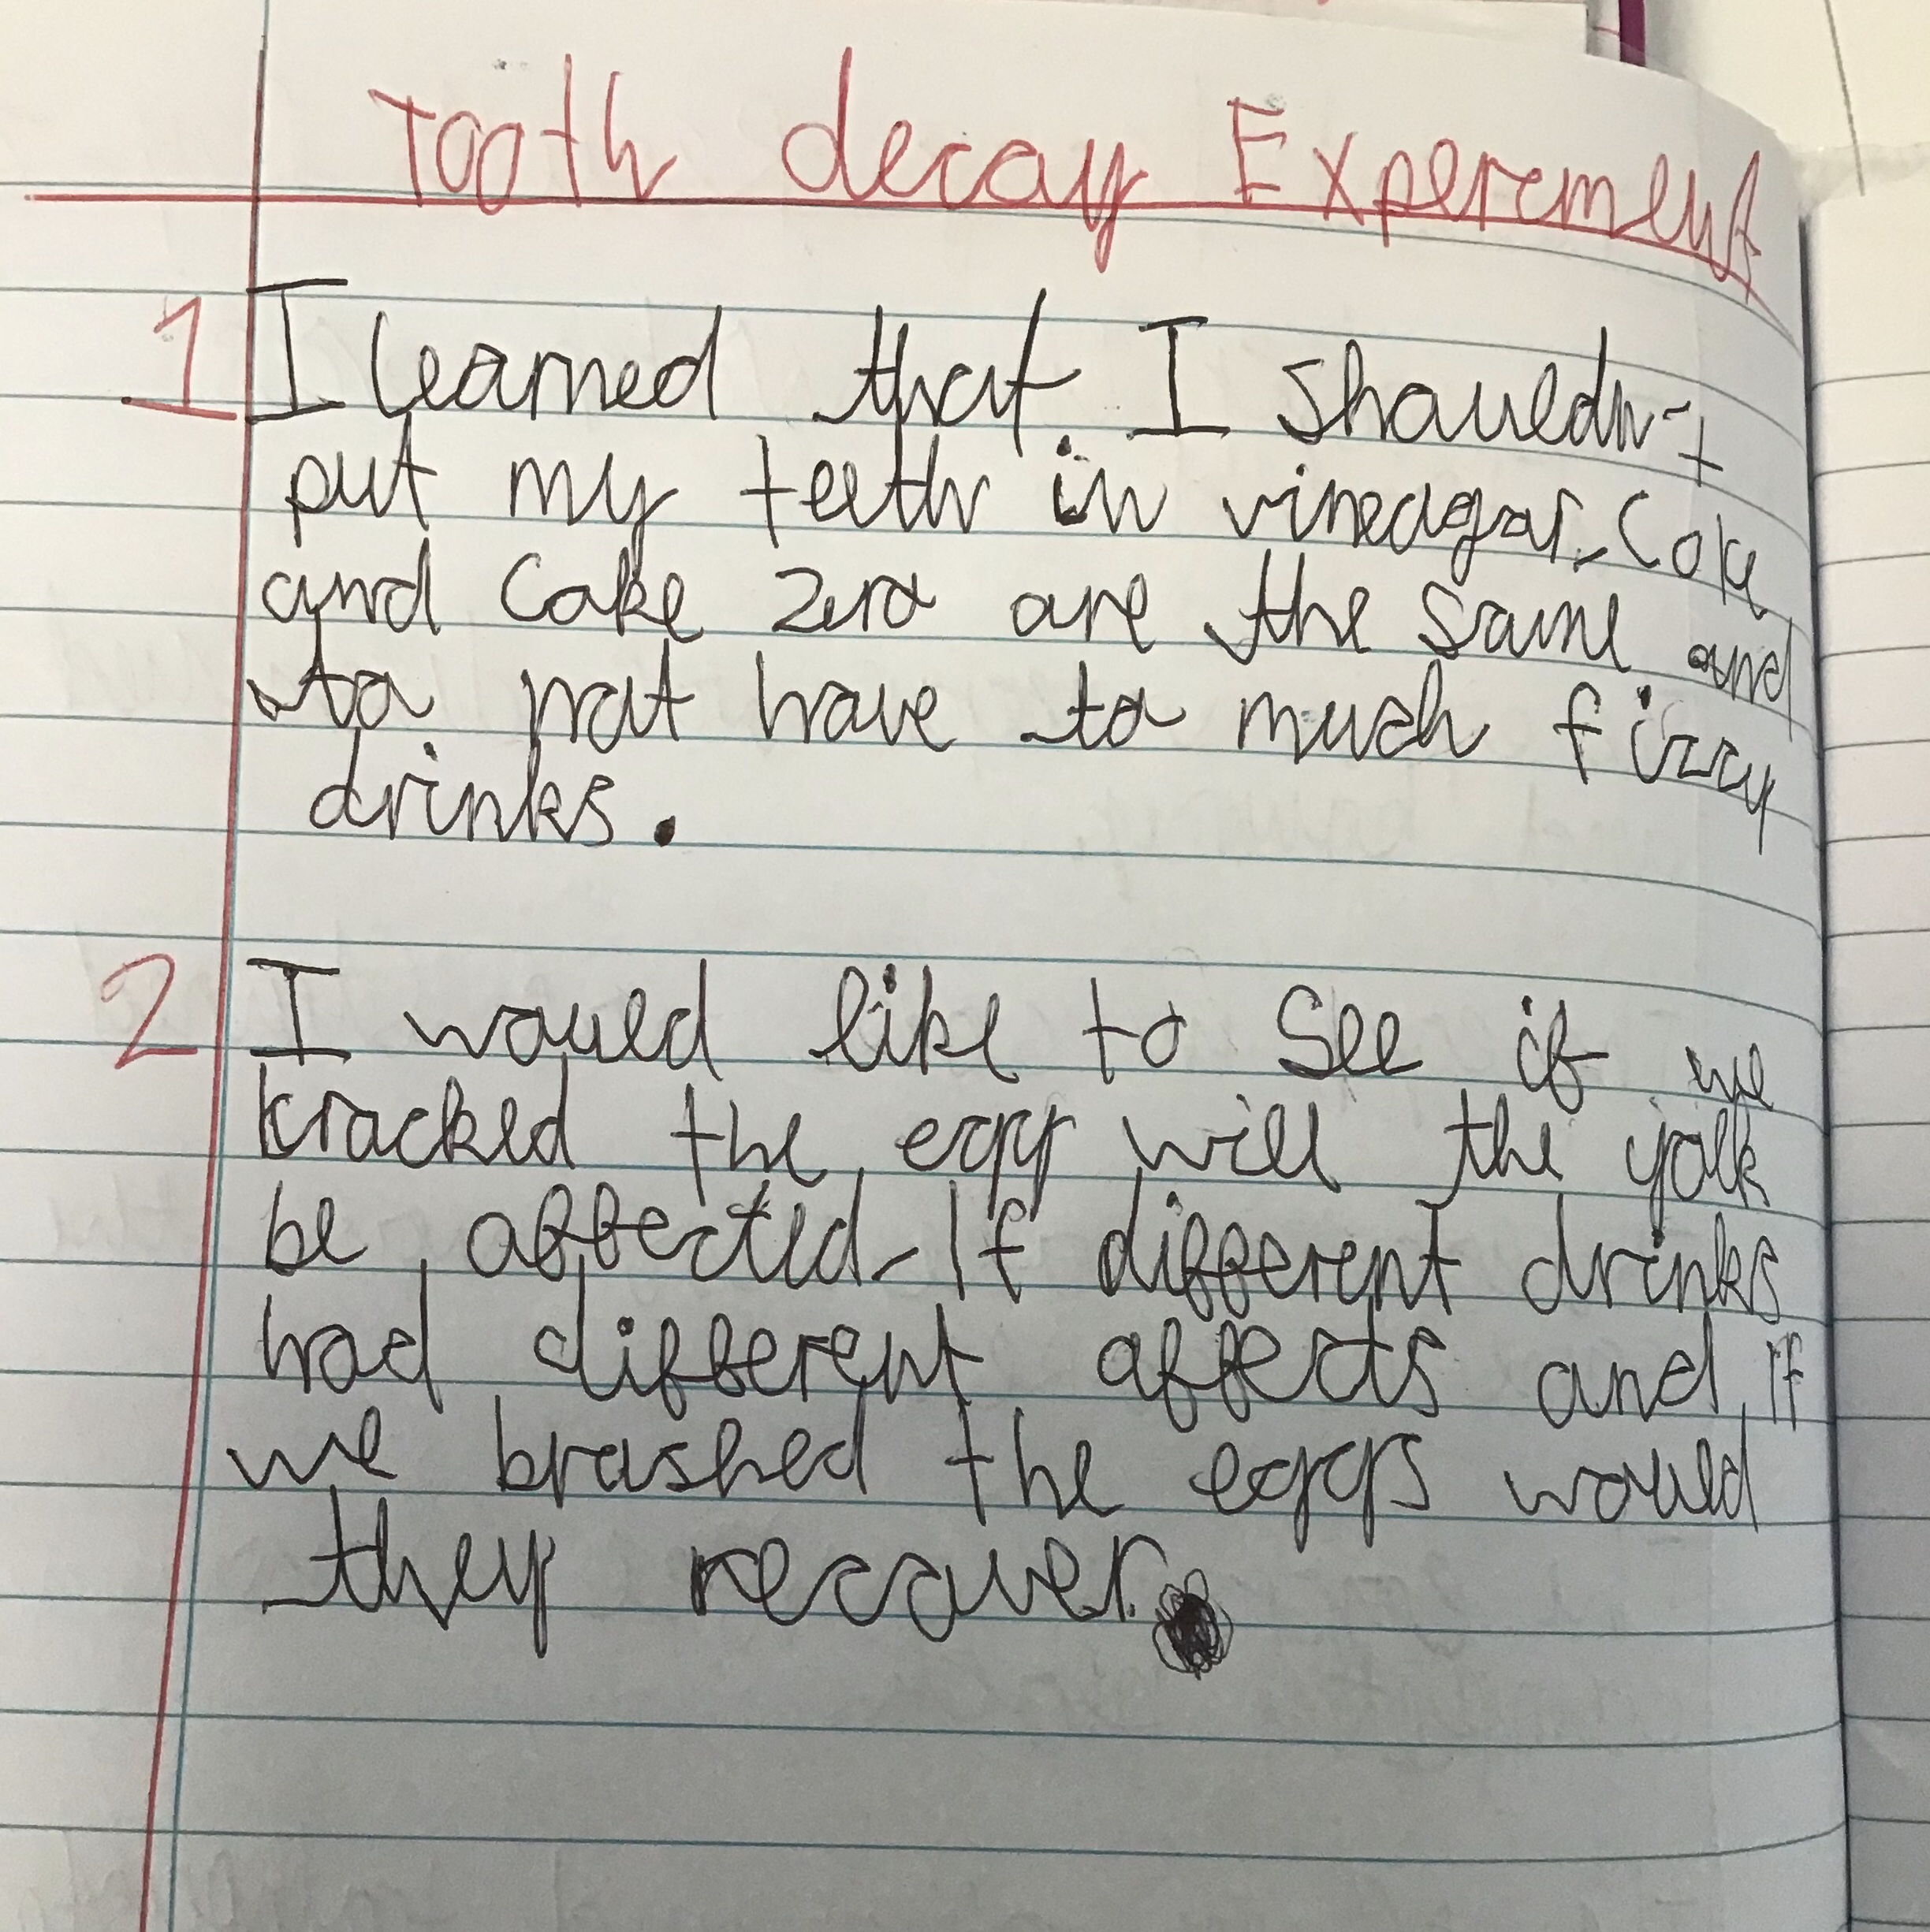 Tooth decay Experement
1 I learned that I shouedn't
put my teeth in vineagar, Coke
and Coke zero are the same and
to not have to much fizzy
drinks.
2 I woued like to See if we
kracked the egg will the yolk
be affected. If different drinks
had different affects and if
we brushed the eggs would
they recover.